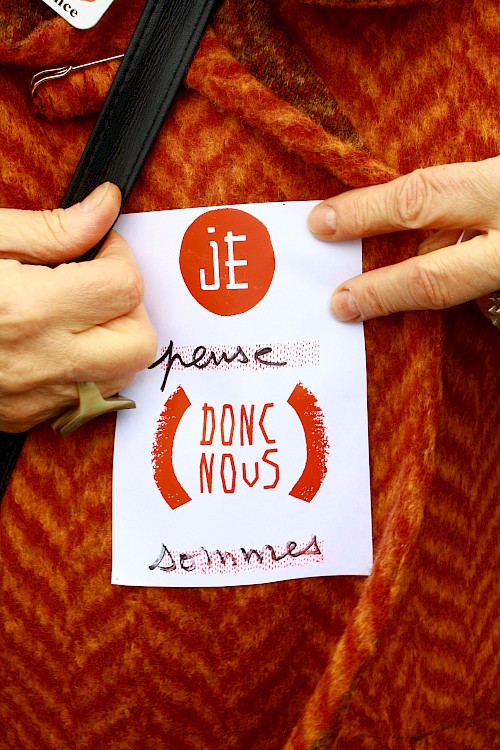 nce
jE
pense
DONC
NOUS
sommes